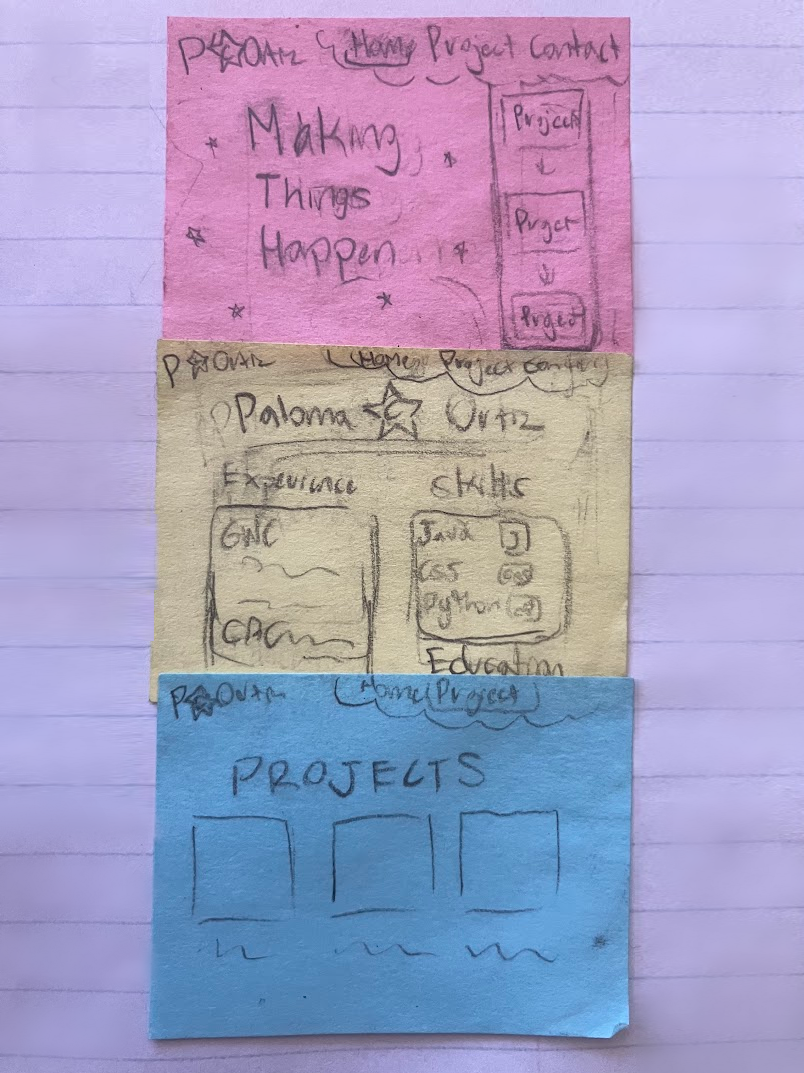 P Ortiz Home Project Contact
Making
Things
Happen
Project
Prject
Prject
P Ortiz Home Project Contact
Paloma C Ortiz
Experience Skills
GWC
Java J
CSS
Python
CAC
Education
P Ortiz Home Project
PROJECTS